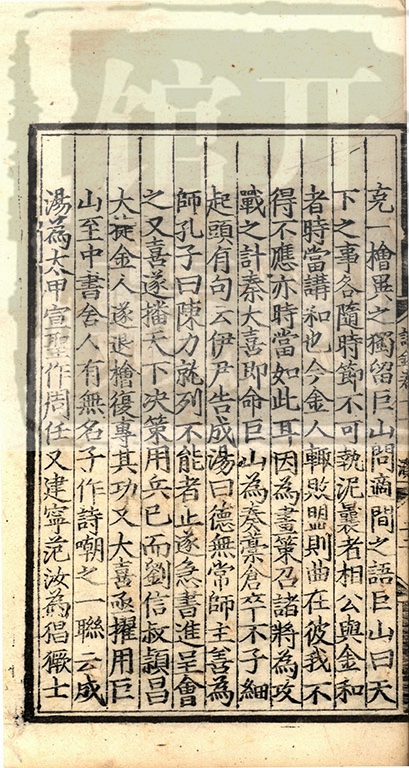 兗一檜異之獨留巨山問啇間之語巨山曰天
下之事各隨時節不可執泥曩者相公與金和
者時當講和也今金人輙敗盟則曲在彼我不
得不應亦時當如此耳因為畫策召諸將為攻
戰之計秦大喜即命巨山為奏藁倉卒不子細
起頭有句云伊尹告成湯曰德無常師主善為
師孔子曰陳力就列不能者止遂急書進呈會
之又喜遂播天下决策用兵已而劉信叔潁昌
大㨗金人遂退檜復專其功又大喜亟擢用巨
山至中書舍人有無名子作詩嘲之一聯云成
湯為太甲宣聖作周任又建寧范汝為猖獗士
開館